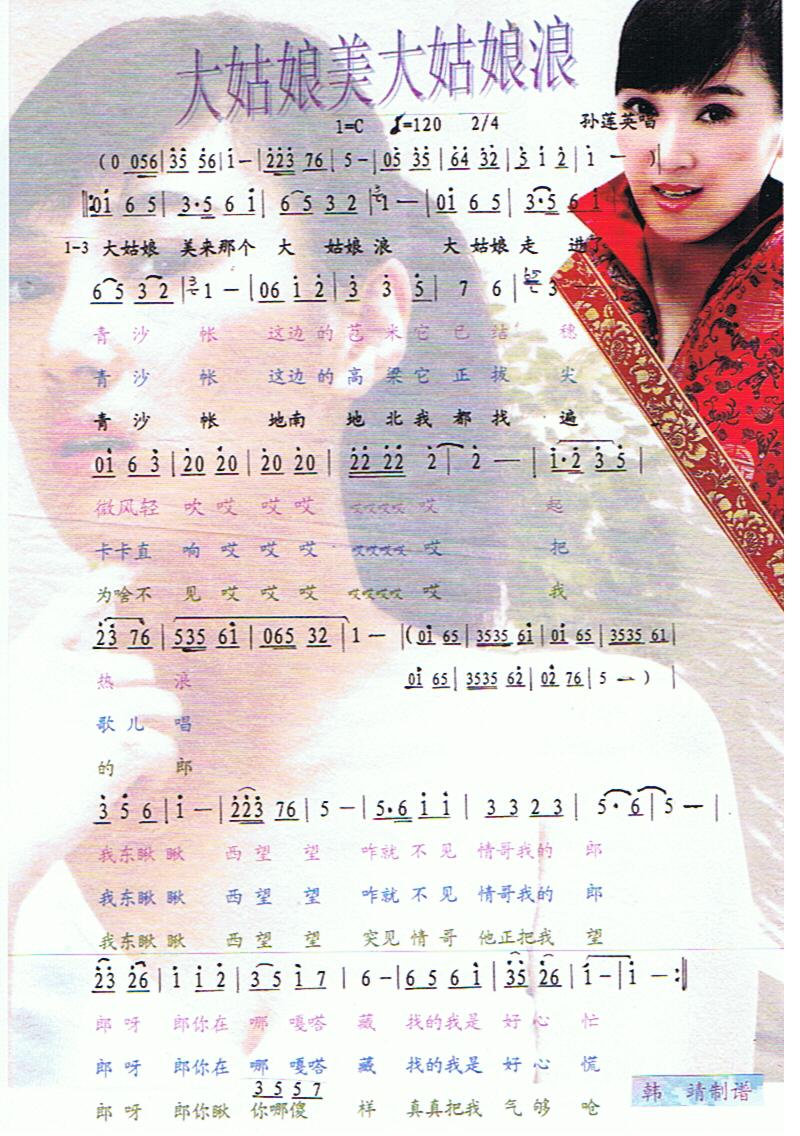 大姑娘美大姑娘浪
1=C ♩=120 2/4 孙莲英唱
(0 056|35 56|i-|223 76|5-|05 35|64 32|5 i 2|i - )|
‖:0i 6 5|3·5 6 i|6 5 3 2|1-|0i 6 5|3·5 6 i
1-3 大姑娘 美来那个 大 姑娘 浪 大 姑娘 走 进了
6 5 3 2|1 -|06 i 2|3 3 5|7 6|3 -
青 沙 帐 这边 的 芭 米 它 已 结 穗
青 沙 帐 这边 的 高 梁 它 正 拔 尖
青 沙 帐 地南 地 北 我 都 找 遍
0i 6 3|20 20|20 20|22 22 2|2 -|i·2 3 5|
微风轻 吹 哎 哎 哎 哎哎哎哎 哎 起
卡卡直 响 哎 哎 哎 哎哎哎哎 哎 把
为啥不 见 哎 哎 哎 哎哎哎哎 哎 我
23 76|535 6i|065 32|1 -|(0i 65|3535 6i|0i 65|3535 61|
热 浪 0i 65|3535 62|02 76|5 - ) |
歌 儿 唱
的 郎
3 5 6|i -|223 76|5 -|5·6 i i|3 3 2 3|5·6|5 -|
我东瞅 瞅 西 望 望 咋就 不 见 情哥我的 郎
我东瞅 瞅 西 望 望 咋就 不 见 情哥我的 郎
我东瞅 瞅 西 望 望 突见 情 哥 他正把我 望
23 26|i i 2|3 5 i 7|6 -|6 5 6 i|35 26|i -|i -:‖
郎 呀 郎你在 哪 嘎嗒 藏 找的我是 好 心 忙
郎 呀 郎你在 哪 嘎嗒 藏 找的我是 好 心 慌
3 5 5 7
郎 呀 郎你瞅 你哪傻 样 真真把我 气 够 呛
韩 靖制谱